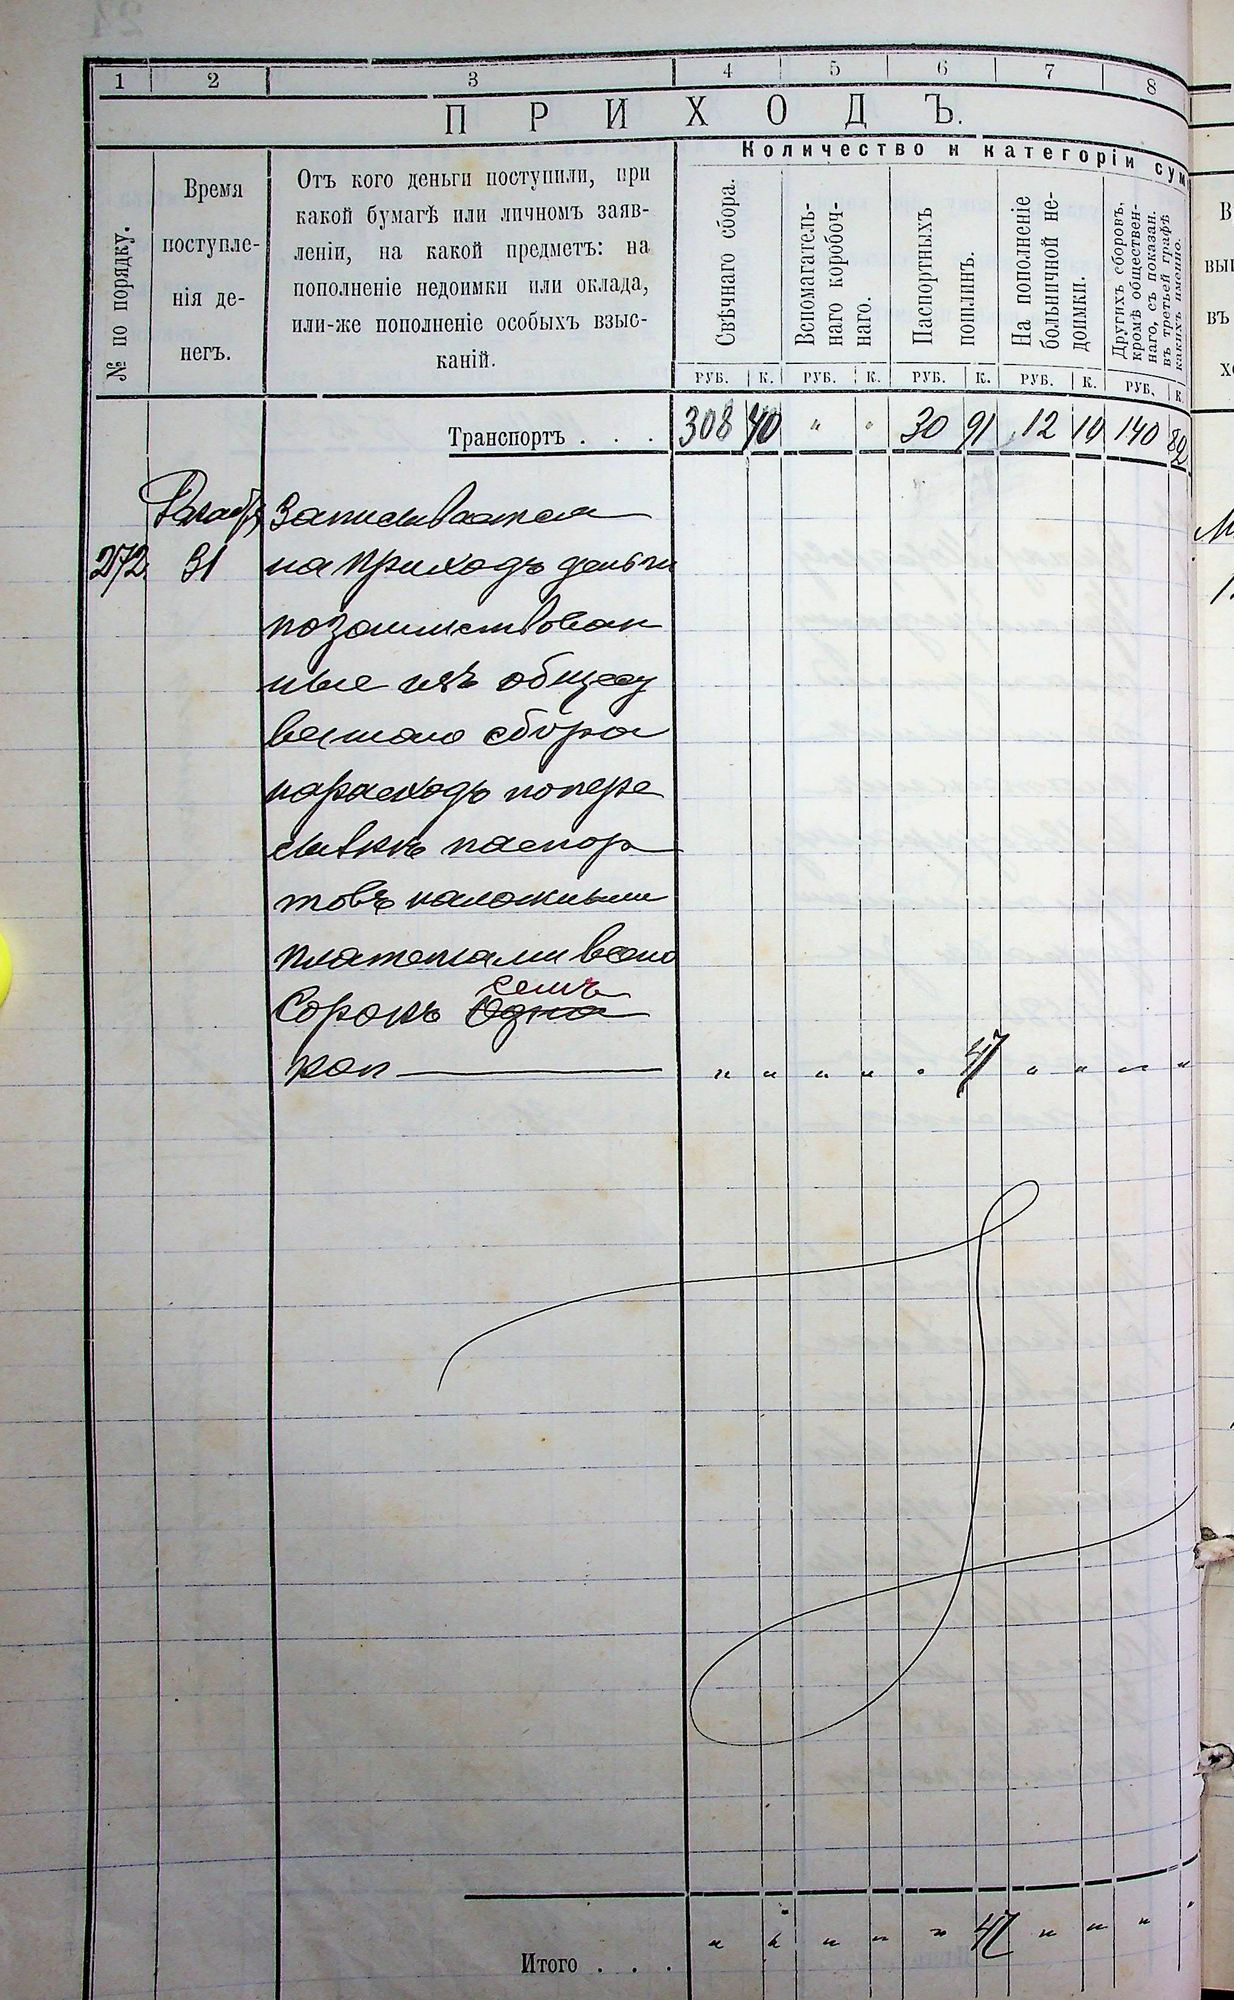 1 2 3 4 5 6 7 8
ПРИХОДЪ.
Количество и категоріи сум
№ по порядку.
Время
поступле-
нія де-
негъ.
Отъ кого деньги поступили, при
какой бумагѣ или личномъ заяв-
леніи, на какой предметъ: на
пополненіе недоимки или оклада,
или-же пополненіе особыхъ взыс-
каній.
Свѣчнаго сбора.
Вспомагатель-
наго коробоч-
наго.
Паспортныхъ
пошлинъ.
На пополненіе
больничной не-
доимки.
Другихъ сборовъ,
кромѣ обществен-
наго, съ показан.
въ третьей графѣ
какихъ именно.
РУБ. К. РУБ. К. РУБ. К. РУБ. К. РУБ. К
Транспортъ . . . 308 40 " " 30 91 12 10 140 82
Декабр Записывается
272 31 на приходъ деньги
позаимствован
ные изъ общест
веннаго сбора
нарасходъ попере
сылкѣ паспор
товъ наложными
платежами всего
семь
Сорокъ одна
коп " " " " " 47 " " " "
Итого . . . " " " " " 47 " " " "
В
выд
въ